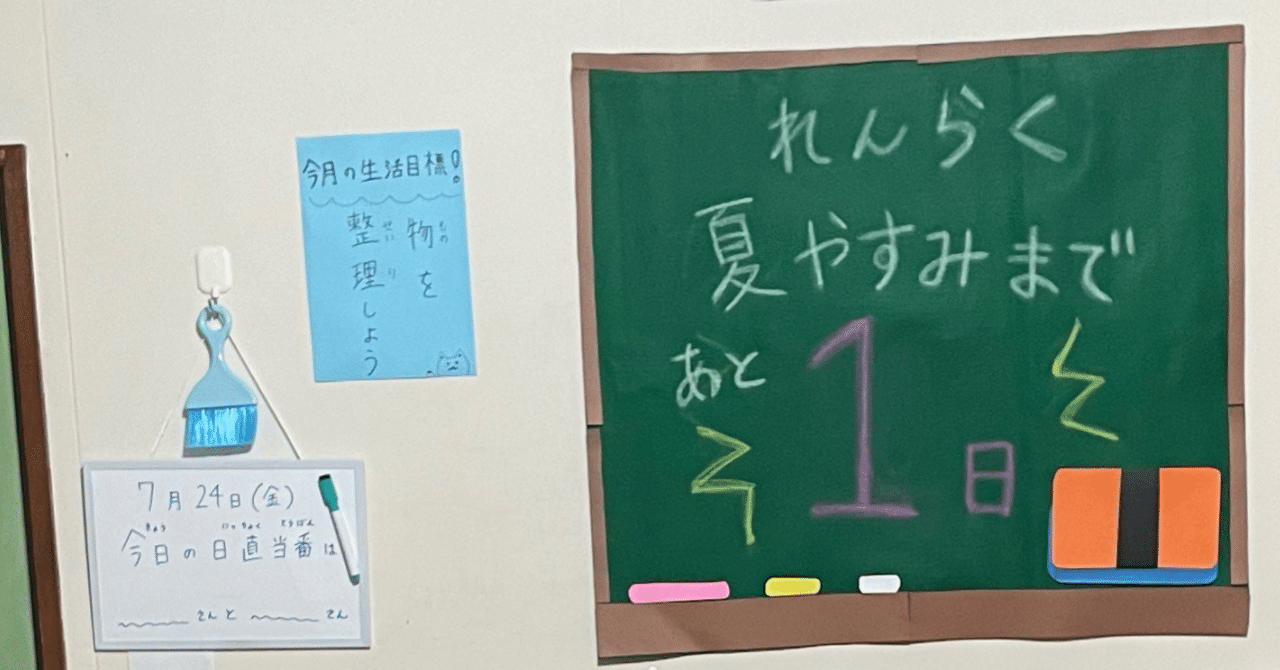 れんらく
夏やすみまで
あと1日
今月の生活目標!
物を
整理しよう
7月24日(金)
今日の日直当番は
さんと さん